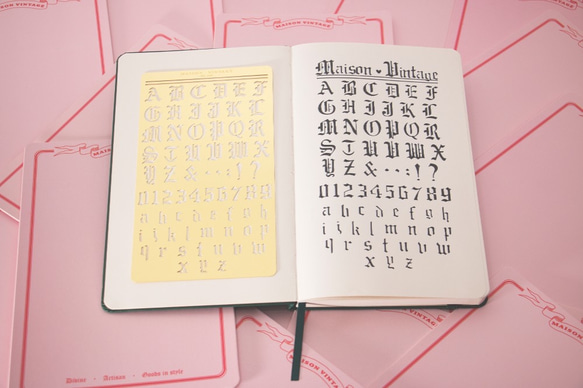 MAISON VINTAGE
A B C D E F
G H I J K L
M N O P Q R
S T U V W X
Y Z & · - · : ! ?
0 1 2 3 4 5 6 7 8 9
a b c d e f g h
i j k l m n o p
q r s t u v w
x y z
Maison ♥ Vintage
A B C D E F
G H I J K L
M N O P Q R
S T U V W X
Y Z & · - · : ! ?
0 1 2 3 4 5 6 7 8 9
a b c d e f g h
i j k l m n o p
q r s t u v w
x y z
MAISON VINTAGE
MAISON VINTAGE
MAISON VINTAGE
Divine · Artisan · Goods in style